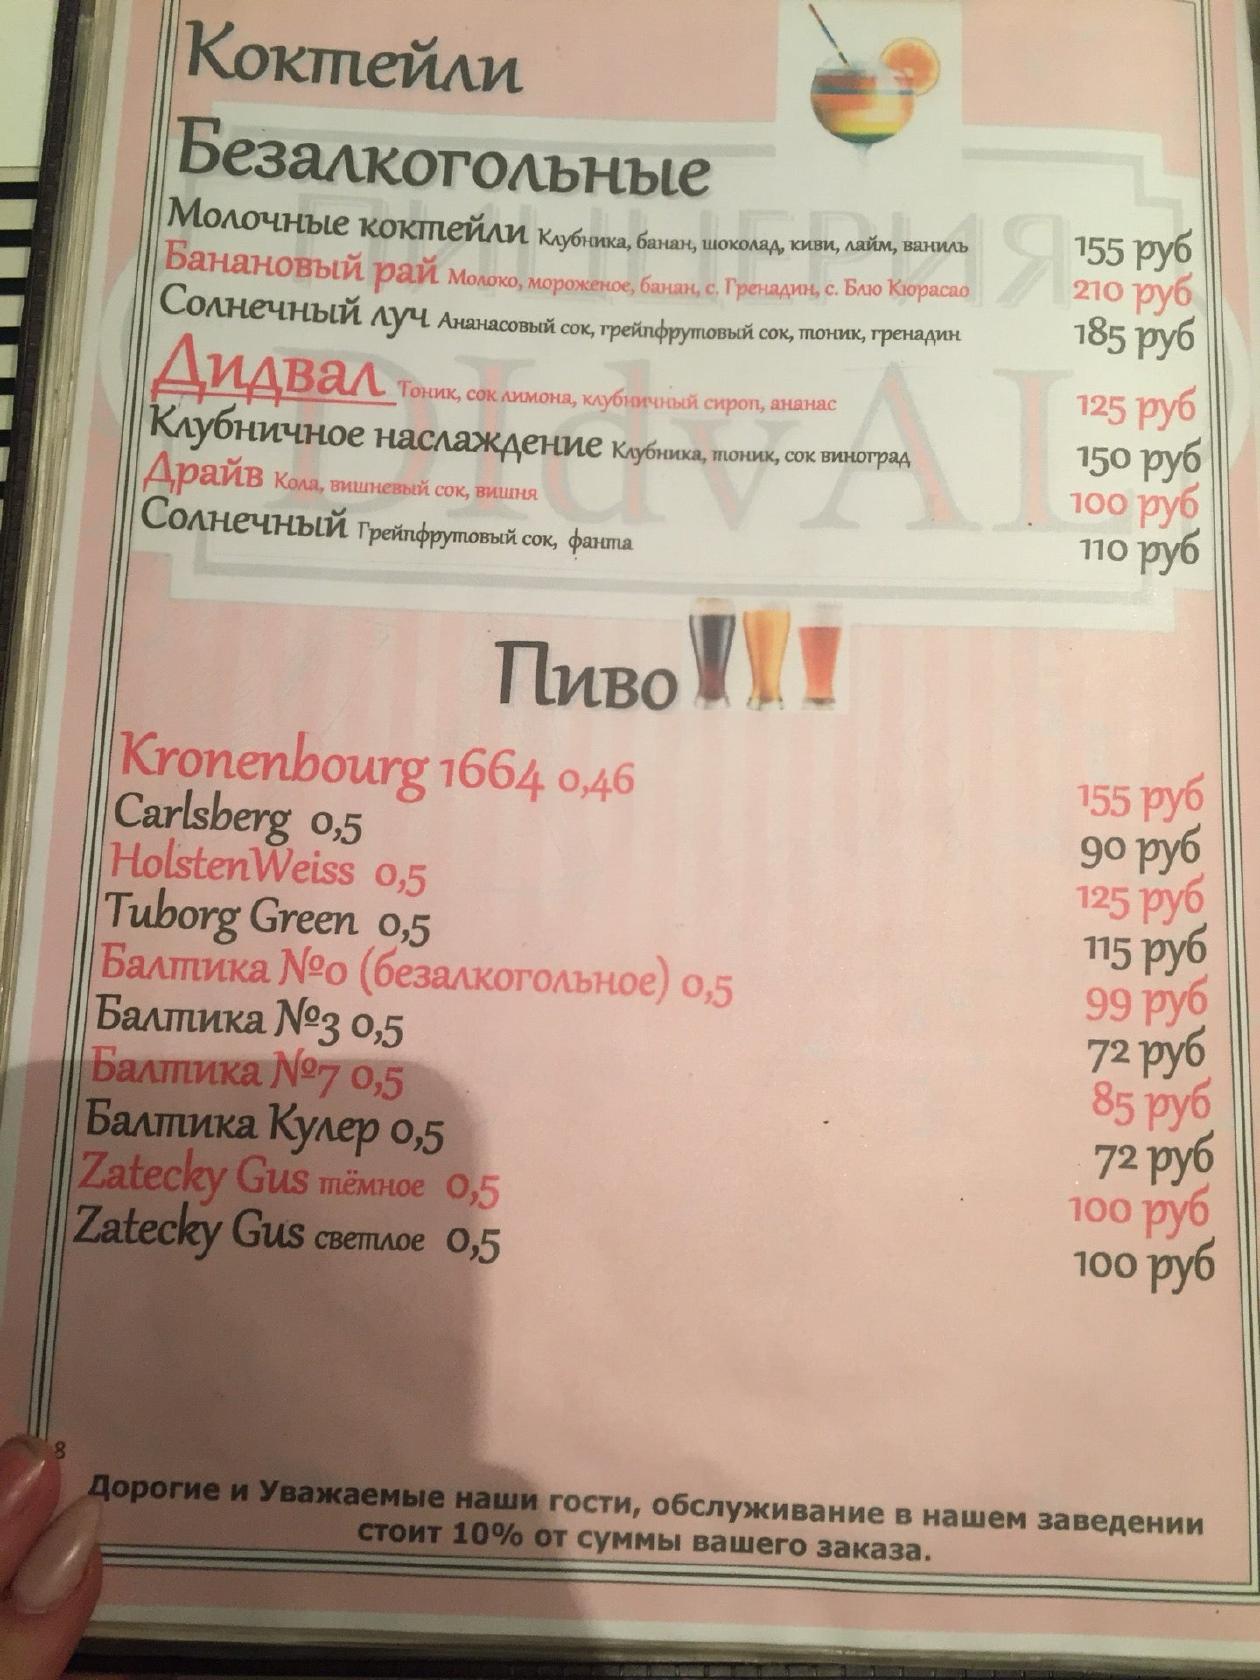 Коктейли
Безалкогольные
Молочные коктейли Клубника, банан, шоколад, киви, лайм, ваниль 155 руб
Банановый рай Молоко, мороженое, банан, с. Гренадин, с. Блю Кюрасао 210 руб
Солнечный луч Ананасовый сок, грейпфрутовый сок, тоник, гренадин 185 руб
Дидвал Тоник, сок лимона, клубничный сироп, ананас 125 руб
Клубничное наслаждение Клубника, тоник, сок виноград 150 руб
Драйв Кола, вишневый сок, вишня 100 руб
Солнечный Грейпфрутовый сок, фанта 110 руб
ПИЦЦЕРИЯ
DIdvAL
Пиво
Kronenbourg 1664 0,46 155 руб
Carlsberg 0,5 90 руб
HolstenWeiss 0,5 125 руб
Tuborg Green 0,5 115 руб
Балтика №0 (безалкогольное) 0,5 99 руб
Балтика №3 0,5 72 руб
Балтика №7 0,5 85 руб
Балтика Кулер 0,5 72 руб
Zatecky Gus тёмное 0,5 100 руб
Zatecky Gus светлое 0,5 100 руб
8
Дорогие и Уважаемые наши гости, обслуживание в нашем заведении
стоит 10% от суммы вашего заказа.